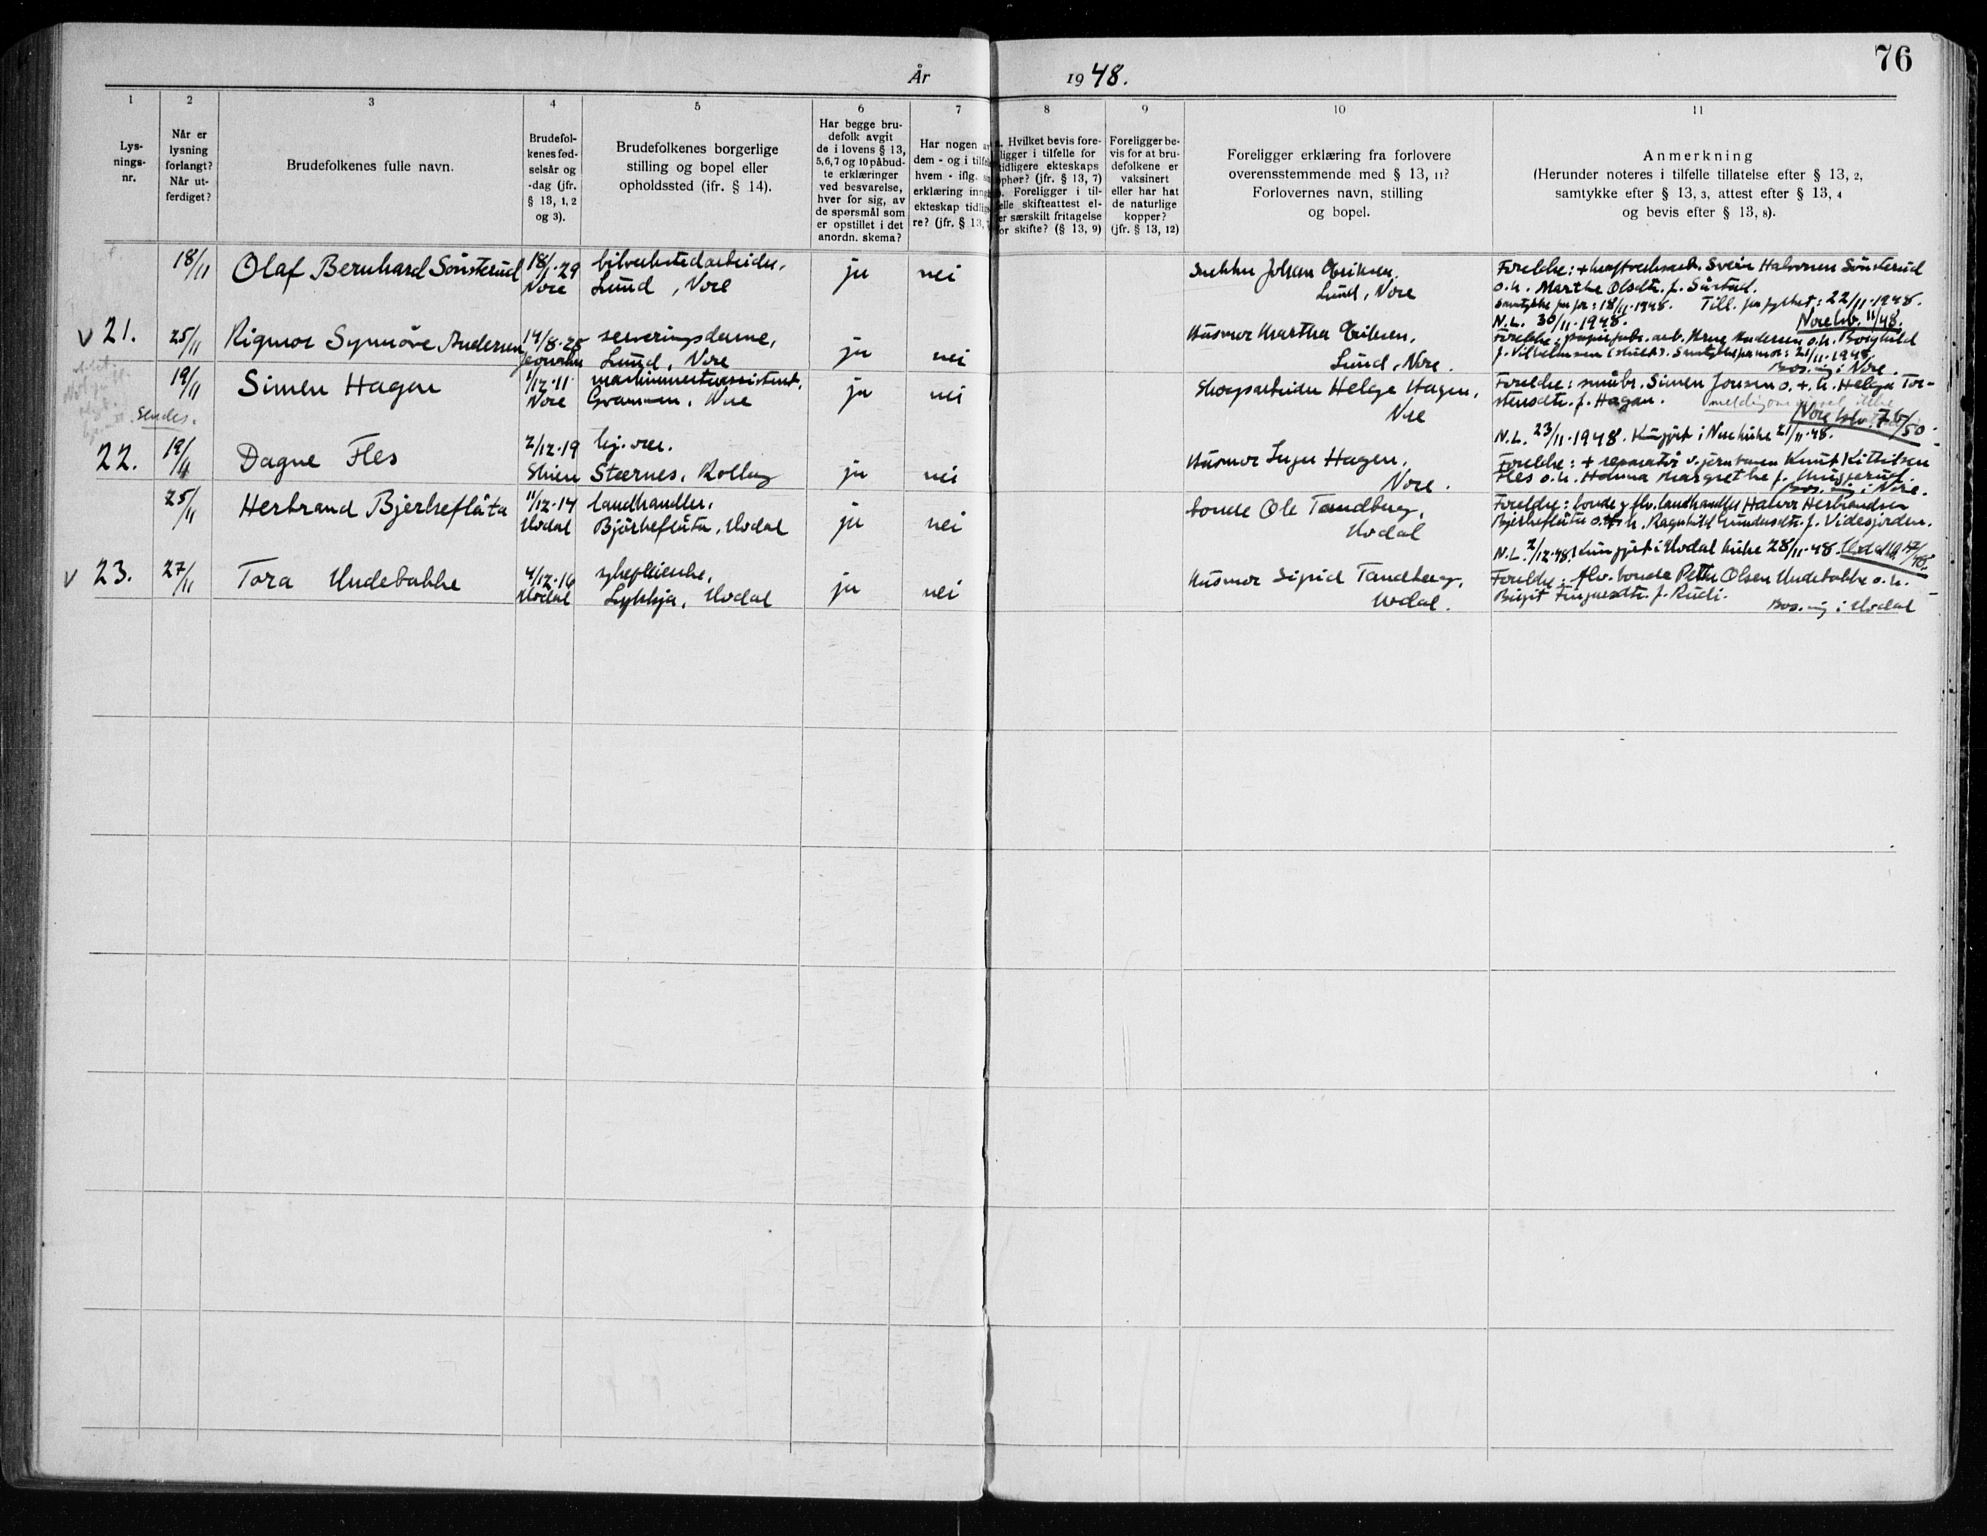 76
År 1948.
1 2 3 4 5 6 7 8 9 10 11
Lys-
nings-
nr.
Når er
lysning
forlangt?
Når ut-
ferdiget?
Brudefolkenes fulle navn.
Brudefol-
kenes fød-
selsår og
-dag (jfr.
§ 13, 1, 2
og 3).
Brudefolkenes borgerlige
stilling og bopel eller
opholdssted (jfr. § 14).
Har begge bru-
defolk avgit
de i lovens § 13,
5,6,7 og 10 påbud-
te erklæringer
ved besvarelse,
hver for sig, av
de spørsmål som
er opstillet i det
anordn. skema?
Har nogen
dem - og i
hvem - iflg.
erklæring
ekteskap
re? (jfr. § 13,
Hvilket bevis fore-
ligger i tilfelle for
tidligere ekteskaps
ophør? (jfr. § 13, 7)
Foreligger i til-
felle skifteattest el-
er særskilt fritagelse
for skifte? (§ 13, 9)
Foreligger be-
vis for at bru-
defolkene er
vaksinert
eller har hat
de naturlige
kopper?
(jfr. § 13, 12)
Foreligger erklæring fra forlovere
overensstemmende med § 13, 11?
Forlovernes navn, stilling
og bopel.
Anmerkning
(Herunder noteres i tilfelle tillatelse efter § 13, 2,
samtykke efter § 13, 3, attest efter § 13, 4
og bevis efter § 13, 8).
18/11 Olaf Bernhard Sönsterud 18/1-29 bilverkstedarbeider, ja nei Snekker Johan Eriksen, Foreldre: + kraftverksarb. Svein Halvorsen Sönsterud
Nore Lund, Nore Lund, Nore o.h. Marthe Olsdtr. f.
18/11-1948. Till. fra fylket: 22/11-1948.
N.L. 30/11-1948. Nore 11/48.
v 21. 25/11 Rigmor Synnöve Andersen 14/8-25 serveringsdame, ja nei Husmor Martha Eriksen, Foreldre: Arne Andersen o.h. Borghild
Lund, Nore Lund, Nore. f. Vilhelmsen 1948.
Bos. i Nore.
19/11 Simen Hagen 1/12-11 maskinmesterassistent, ja nei Skogsarbeider Helge Hagen, Foreldre: småbr. Simen Jonsen o. + h. Helga Tor-
Nore Nore Nore stensdtr. f. Hagan.
Slides.
N.L. 23/11-1948. i Nore kirke 21/11-48.
22. 19/11 Dagne Fles 2/12-19 ja nei Husmor Hagen, Foreldre: + reparatör v. jernbanen Knut Kittilsen
Skien Stærnes, Rollag Nore. Fles o.h. Hanna Margrethe f.
Bos. i Nore.
25/11 Herbrand Bjerkeflåta 11/12-14 landhandler, ja nei bonde Ole Tandberg, Foreldre: bonde landhandler Halvor Herbrandsen
Uvdal Bjerkeflåta, Uvdal Uvdal Bjerkeflåta o. h. Ragnhild Gundersdtr. f. Videsjorden.
N.L. 2/12-48. i Uvdal kirke 28/11-48.
v 23. 27/11 Tora Undebakke 4/12-16 sykepleierske, ja nei Husmor Sigrid Tandberg, Foreldre: bonde Petter Olsen Undebakke o.h.
Uvdal Lykkja, Uvdal Uvdal. Birgit f. Rudi.
Bos. i Uvdal